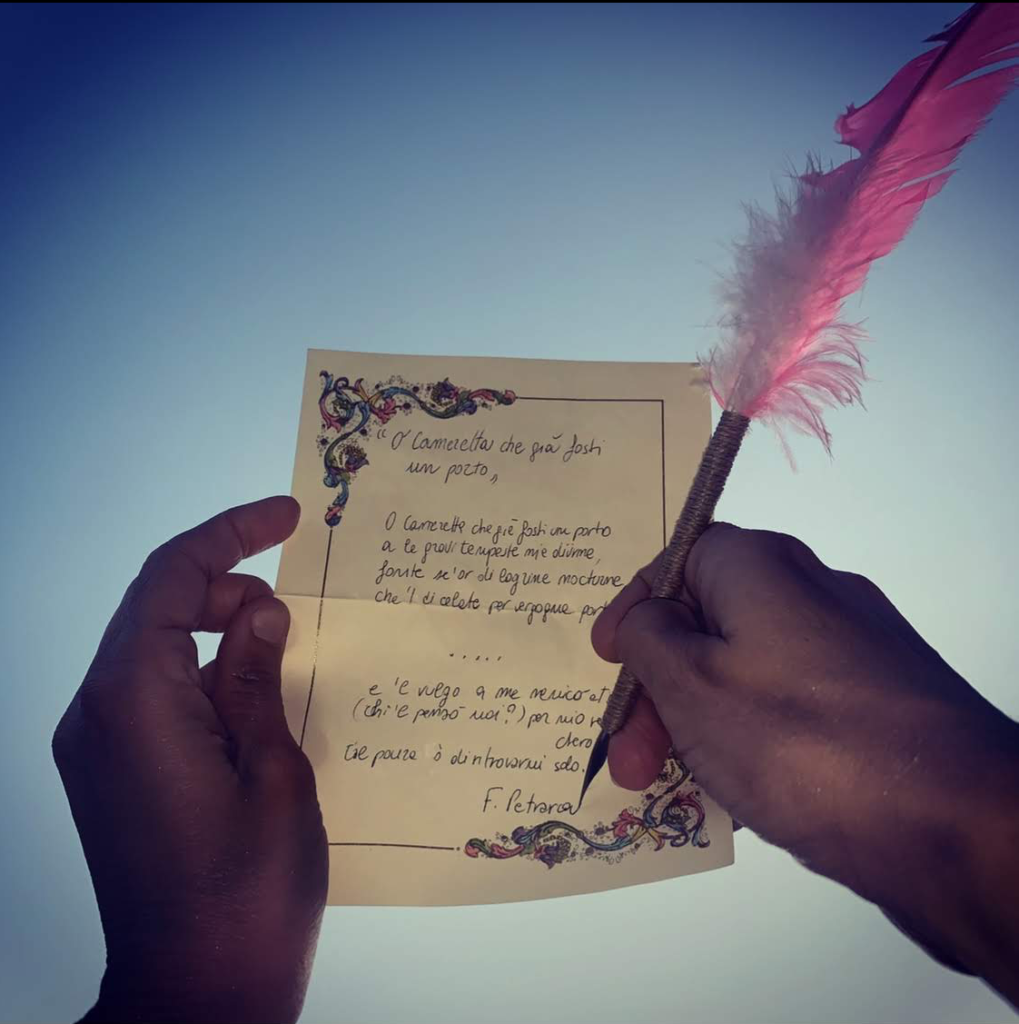 “O Cameretta che già fosti
un porto„
O Cameretta che già fosti un porto
a le gravi tempeste mie diurne,
fonte se'or di lagrime nocturne
che 'l dì celate per vergogna port
.....
e 'l vulgo a me nemico et
(chi 'l pensò mai?) per mio re
chero
Tal paura ò di ritrovarmi solo.
F. Petrarca